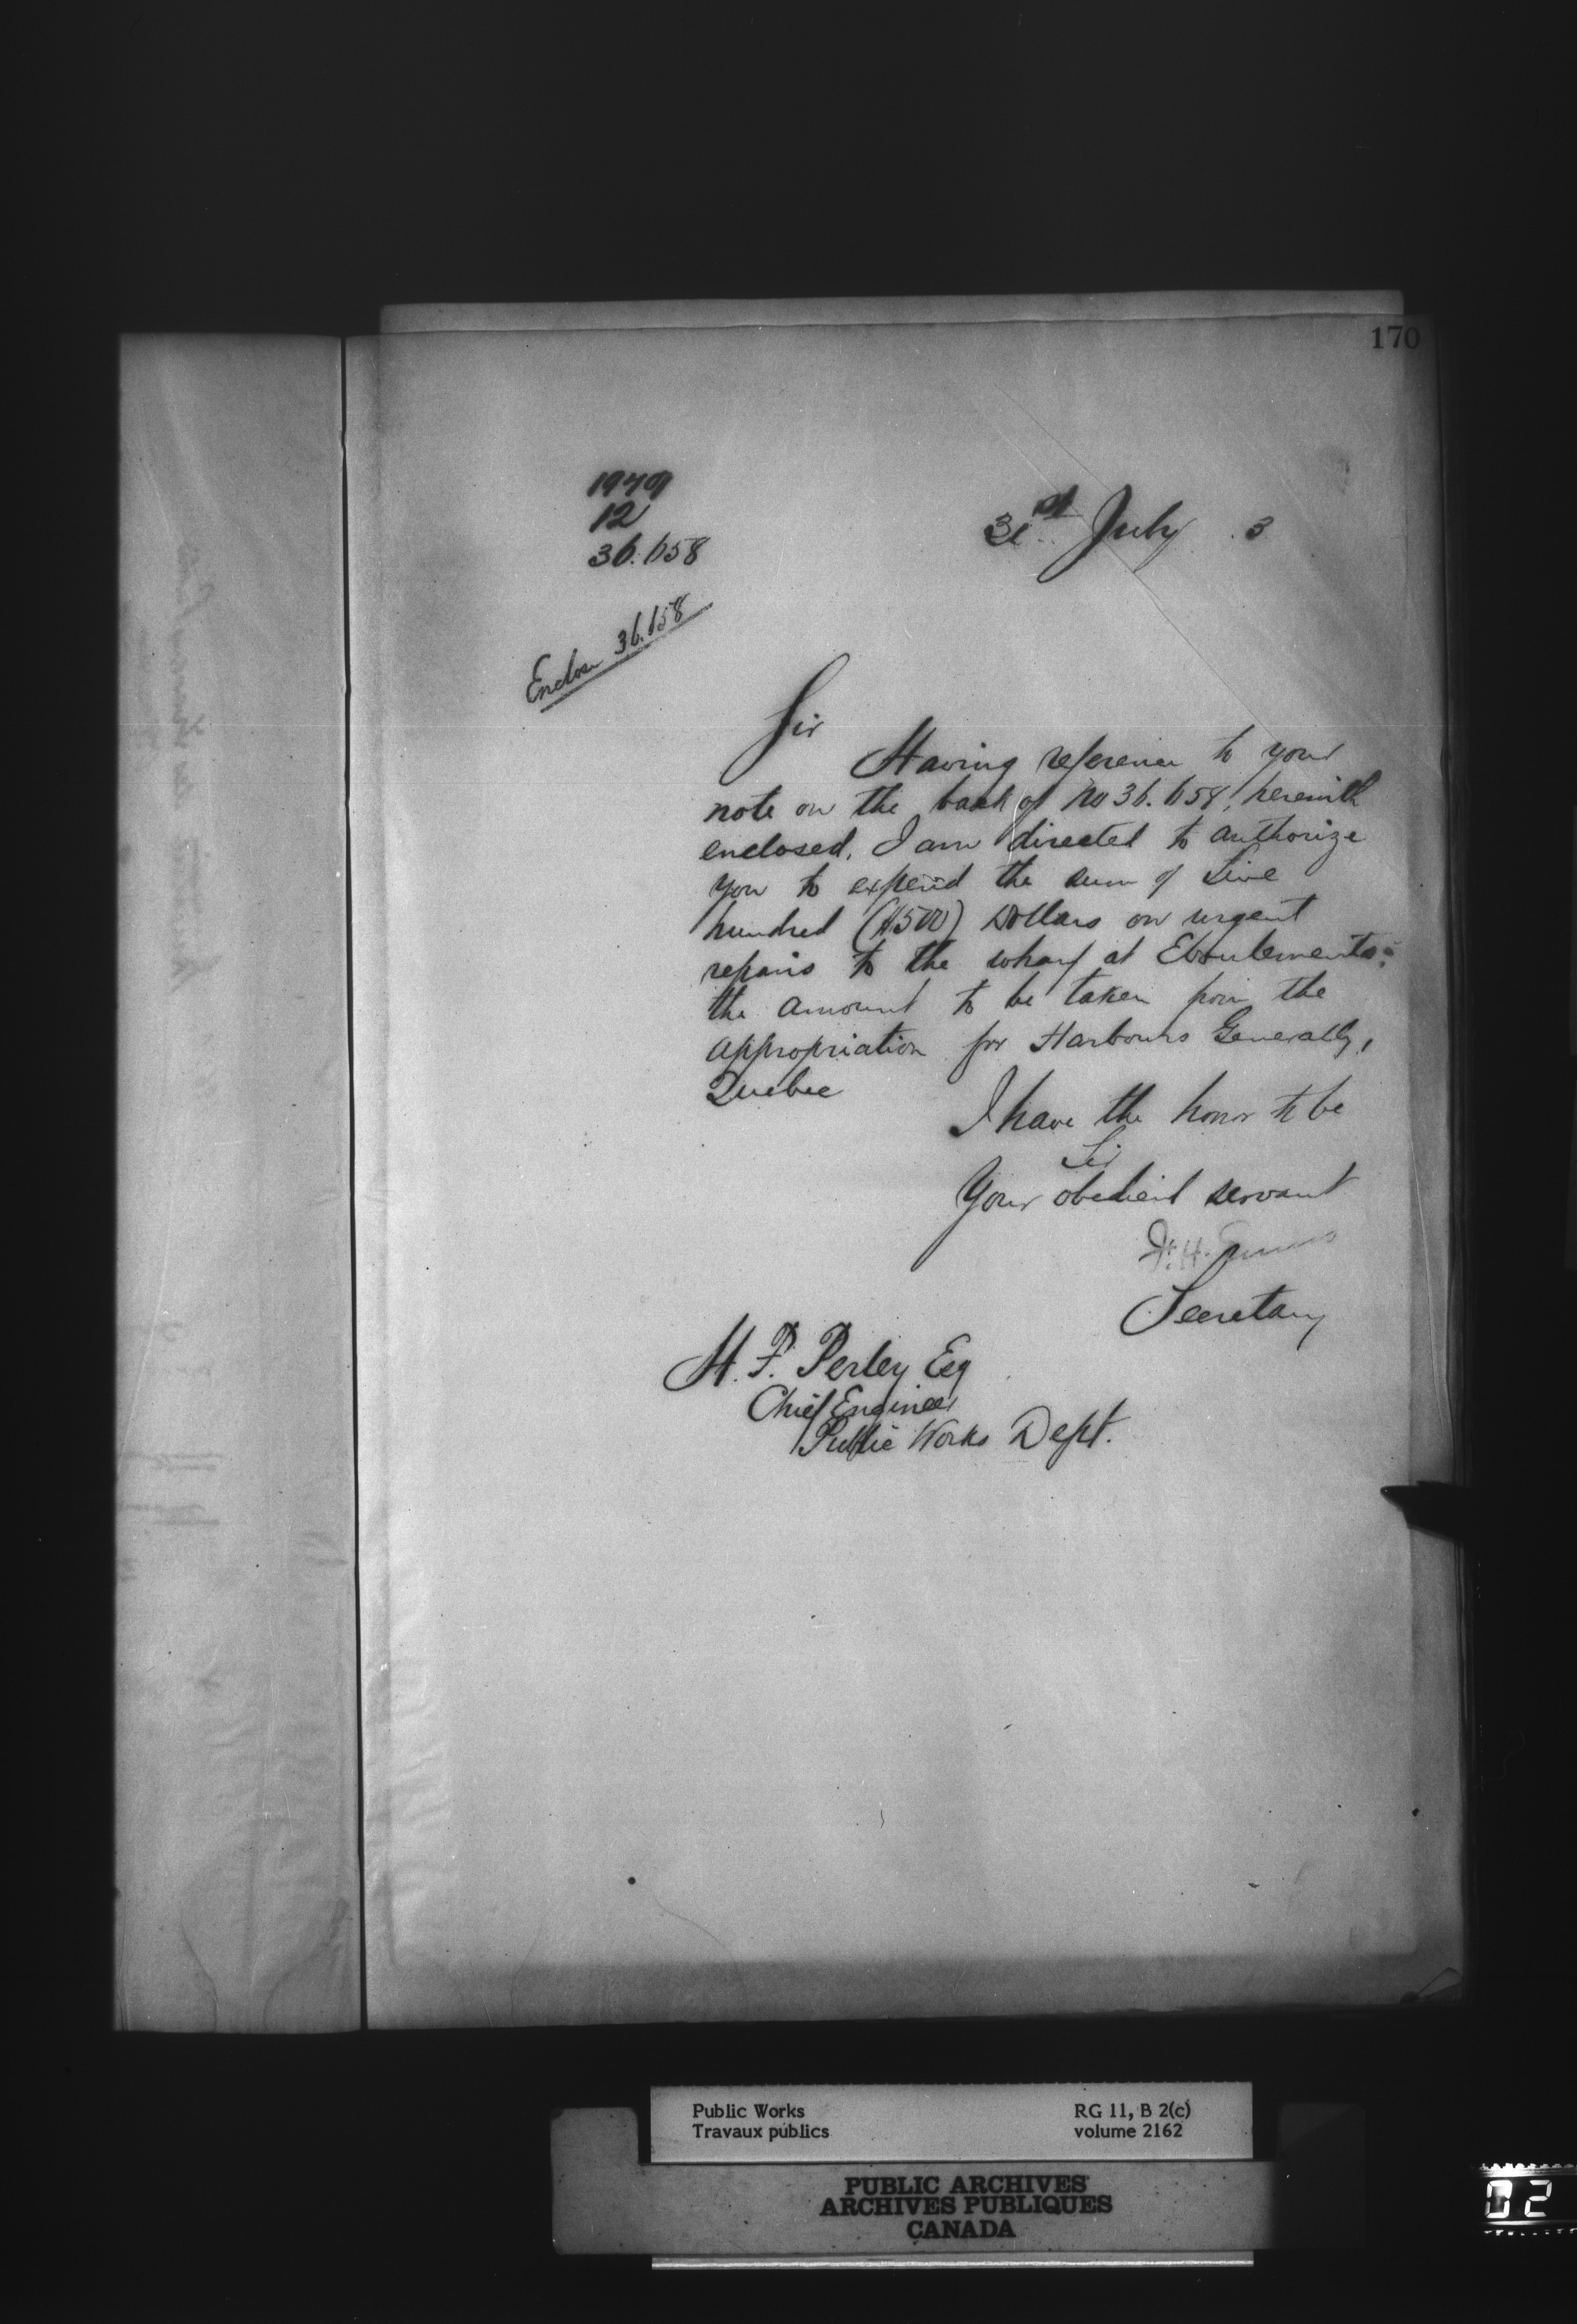 170
1949
12
36.658
31st July 3
Enclose 36.658
Sir
Having reference to your
note on the back of No 36.658, herewith
enclosed, I am directed to authorize
you to expend the sum of Five
hundred ($500) Dollars on urgent
repairs to the wharf at Eboulements:
the amount to be taken from the
appropriation for Harbours Generally,
Quebec
I have the honor to be
Sir
Your obedient servant
F. H. Ennis
Secretary
H. F. Perley Esq
Chief Engineer
Public Works Dept.
Public Works
Travaux publics
RG 11, B 2(c)
volume 2162
PUBLIC ARCHIVES
ARCHIVES PUBLIQUES
CANADA
02